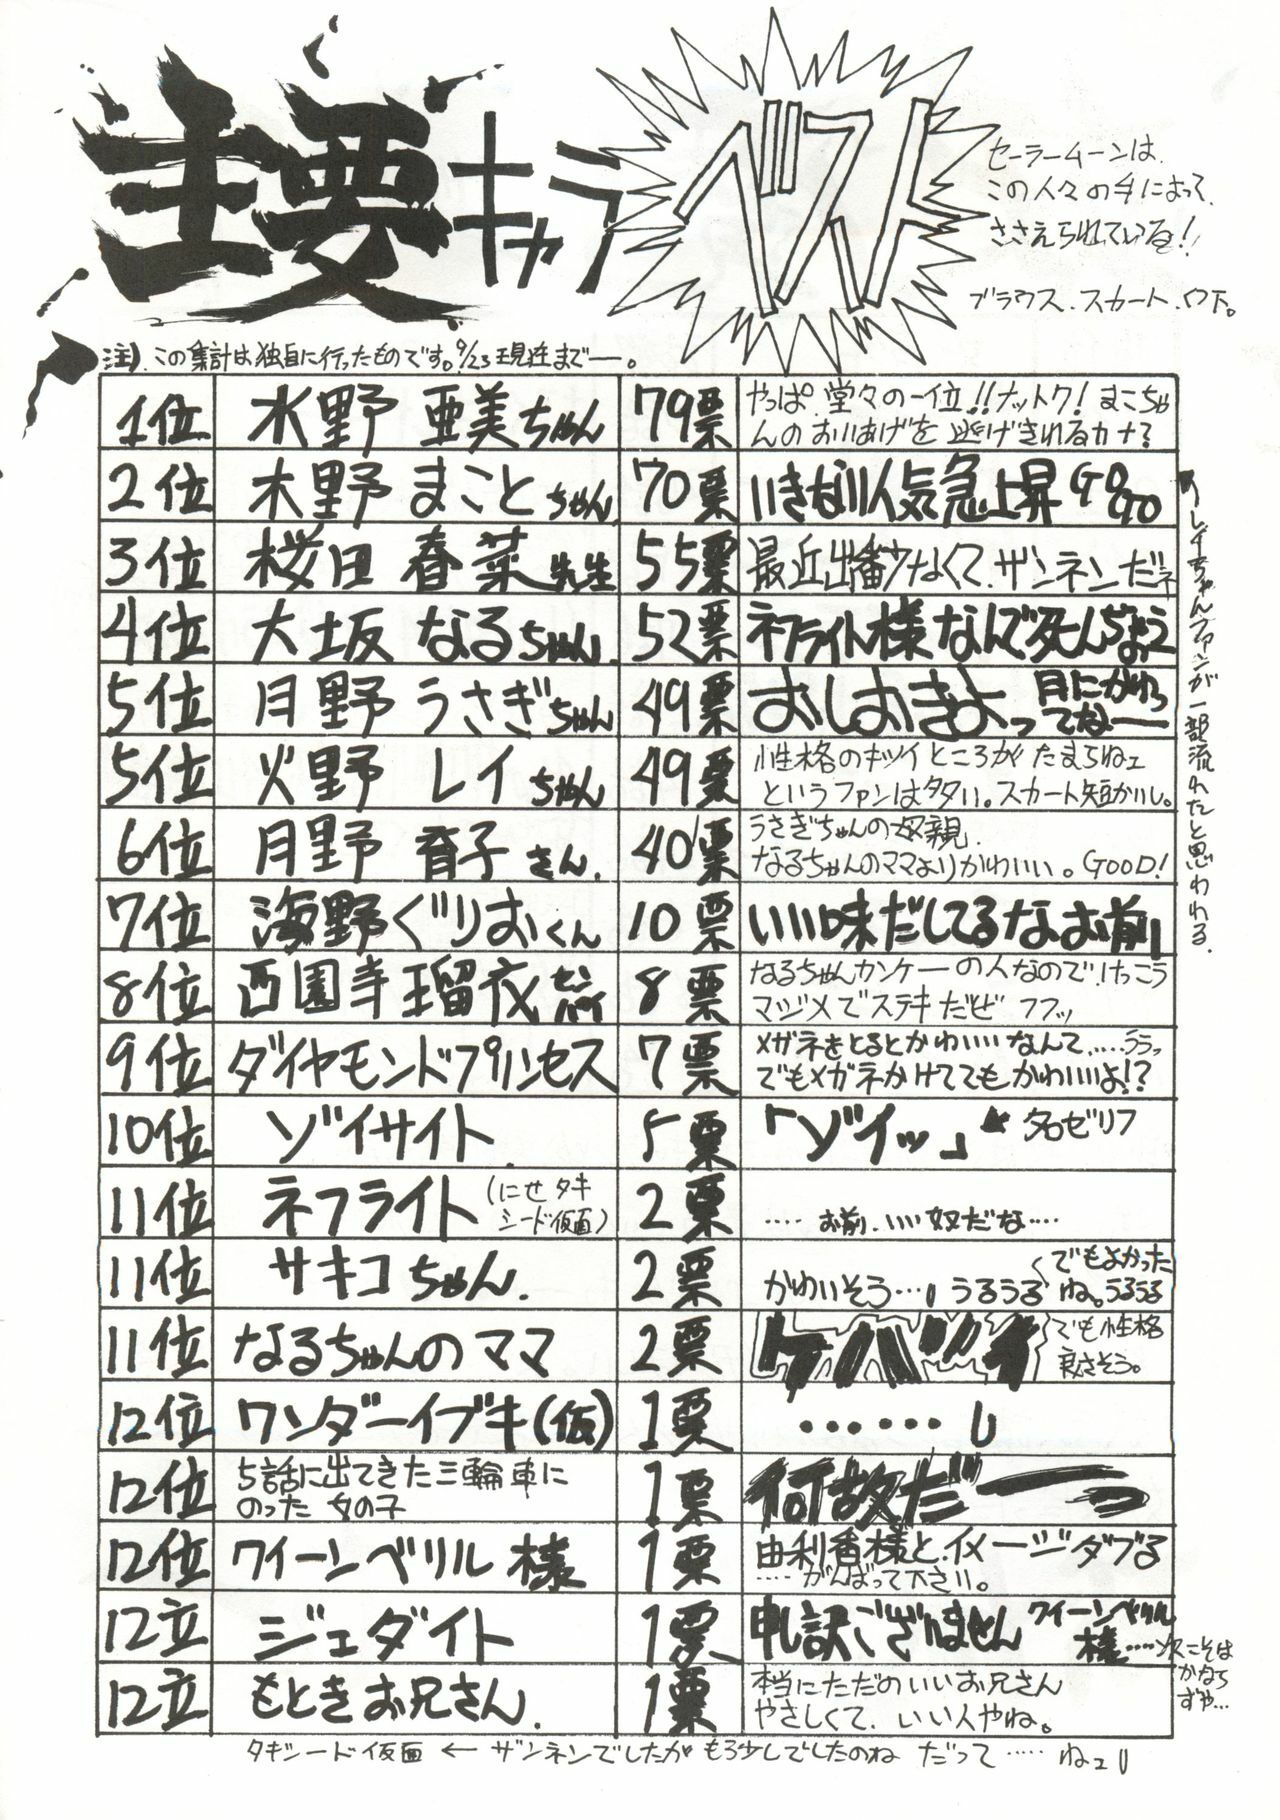 主要キャラ
ベスト
セーラームーンは、
この人々の手によって、
ささえられている!
ブラウス、スカート、ワ下。
注)、この集計は独自に行ったものです。9/23現在まで—。
1位 水野 亜美ちゃん 79票 やっぱ、堂々の一位!!ナットク! まこちゃ
んのおいあげを 逃げきれるカナ?
2位 木野 まことちゃん 70票 いきなり人気急上昇 GO GO
3位 桜田 春菜先生 55票 最近出番少なくて、ザンネンだネ
4位 大坂 なるちゃん 52票 ネフライト様なんで死んぢょう
5位 月野 うさぎちゃん 49票 おしおきよっ 月にかわっ
てな——
5位 火野 レイちゃん 49票 性格のキツイところが たまらねェ
というファンは多い。スカート短かいし。
6位 月野 育子さん 40票 うさぎちゃんの母親、
なるちゃんのママよりかわいい。GOOD!
7位 海野ぐりおくん 10票 いい味だしてるなお前
8位 西園寺 瑠衣 8票 なるちゃんカンケーの人なので、けっこう
マジメでステキだど フフッ
9位 ダイヤモンドプリンセス 7票 メガネをとるとかわいいなんて、……ううっ
でもメガネかけててもかわいいよ!?
10位 ゾイサイト 5票 「ゾイッ」 名ゼリフ
11位 ネフライト (にせ タキ
シード仮面) 2票 ‥‥ お前、いい奴だな‥‥
11位 サキコちゃん 2票 かわいそう…、うるうる でもよかった
ね。うるうる
11位 なるちゃんのママ 2票 ケバツイ でも性格
良さそう。
12位 ワンダーイブキ(仮) 1票 ・・・・・・
12位 5話に出てきた三輪車に
のった女の子 1票 何故だーっ
12位 クイーンベリル 様 1票 由利香様と、イメージダブる
‥‥‥がんばって下さい。
12位 ジェダイト 1票 申し訳ございません クイーンベリル
様‥‥次こそは
かなら
ずや…
12位 もときお兄さん 1票 本当にただのいいお兄さん
やさしくて、いい人やね。
レイちゃんファンが一部流れたと思われる。
タキシード仮面 ← ザンネンでしたが もう少しでしたのね だって‥‥‥ ねェ